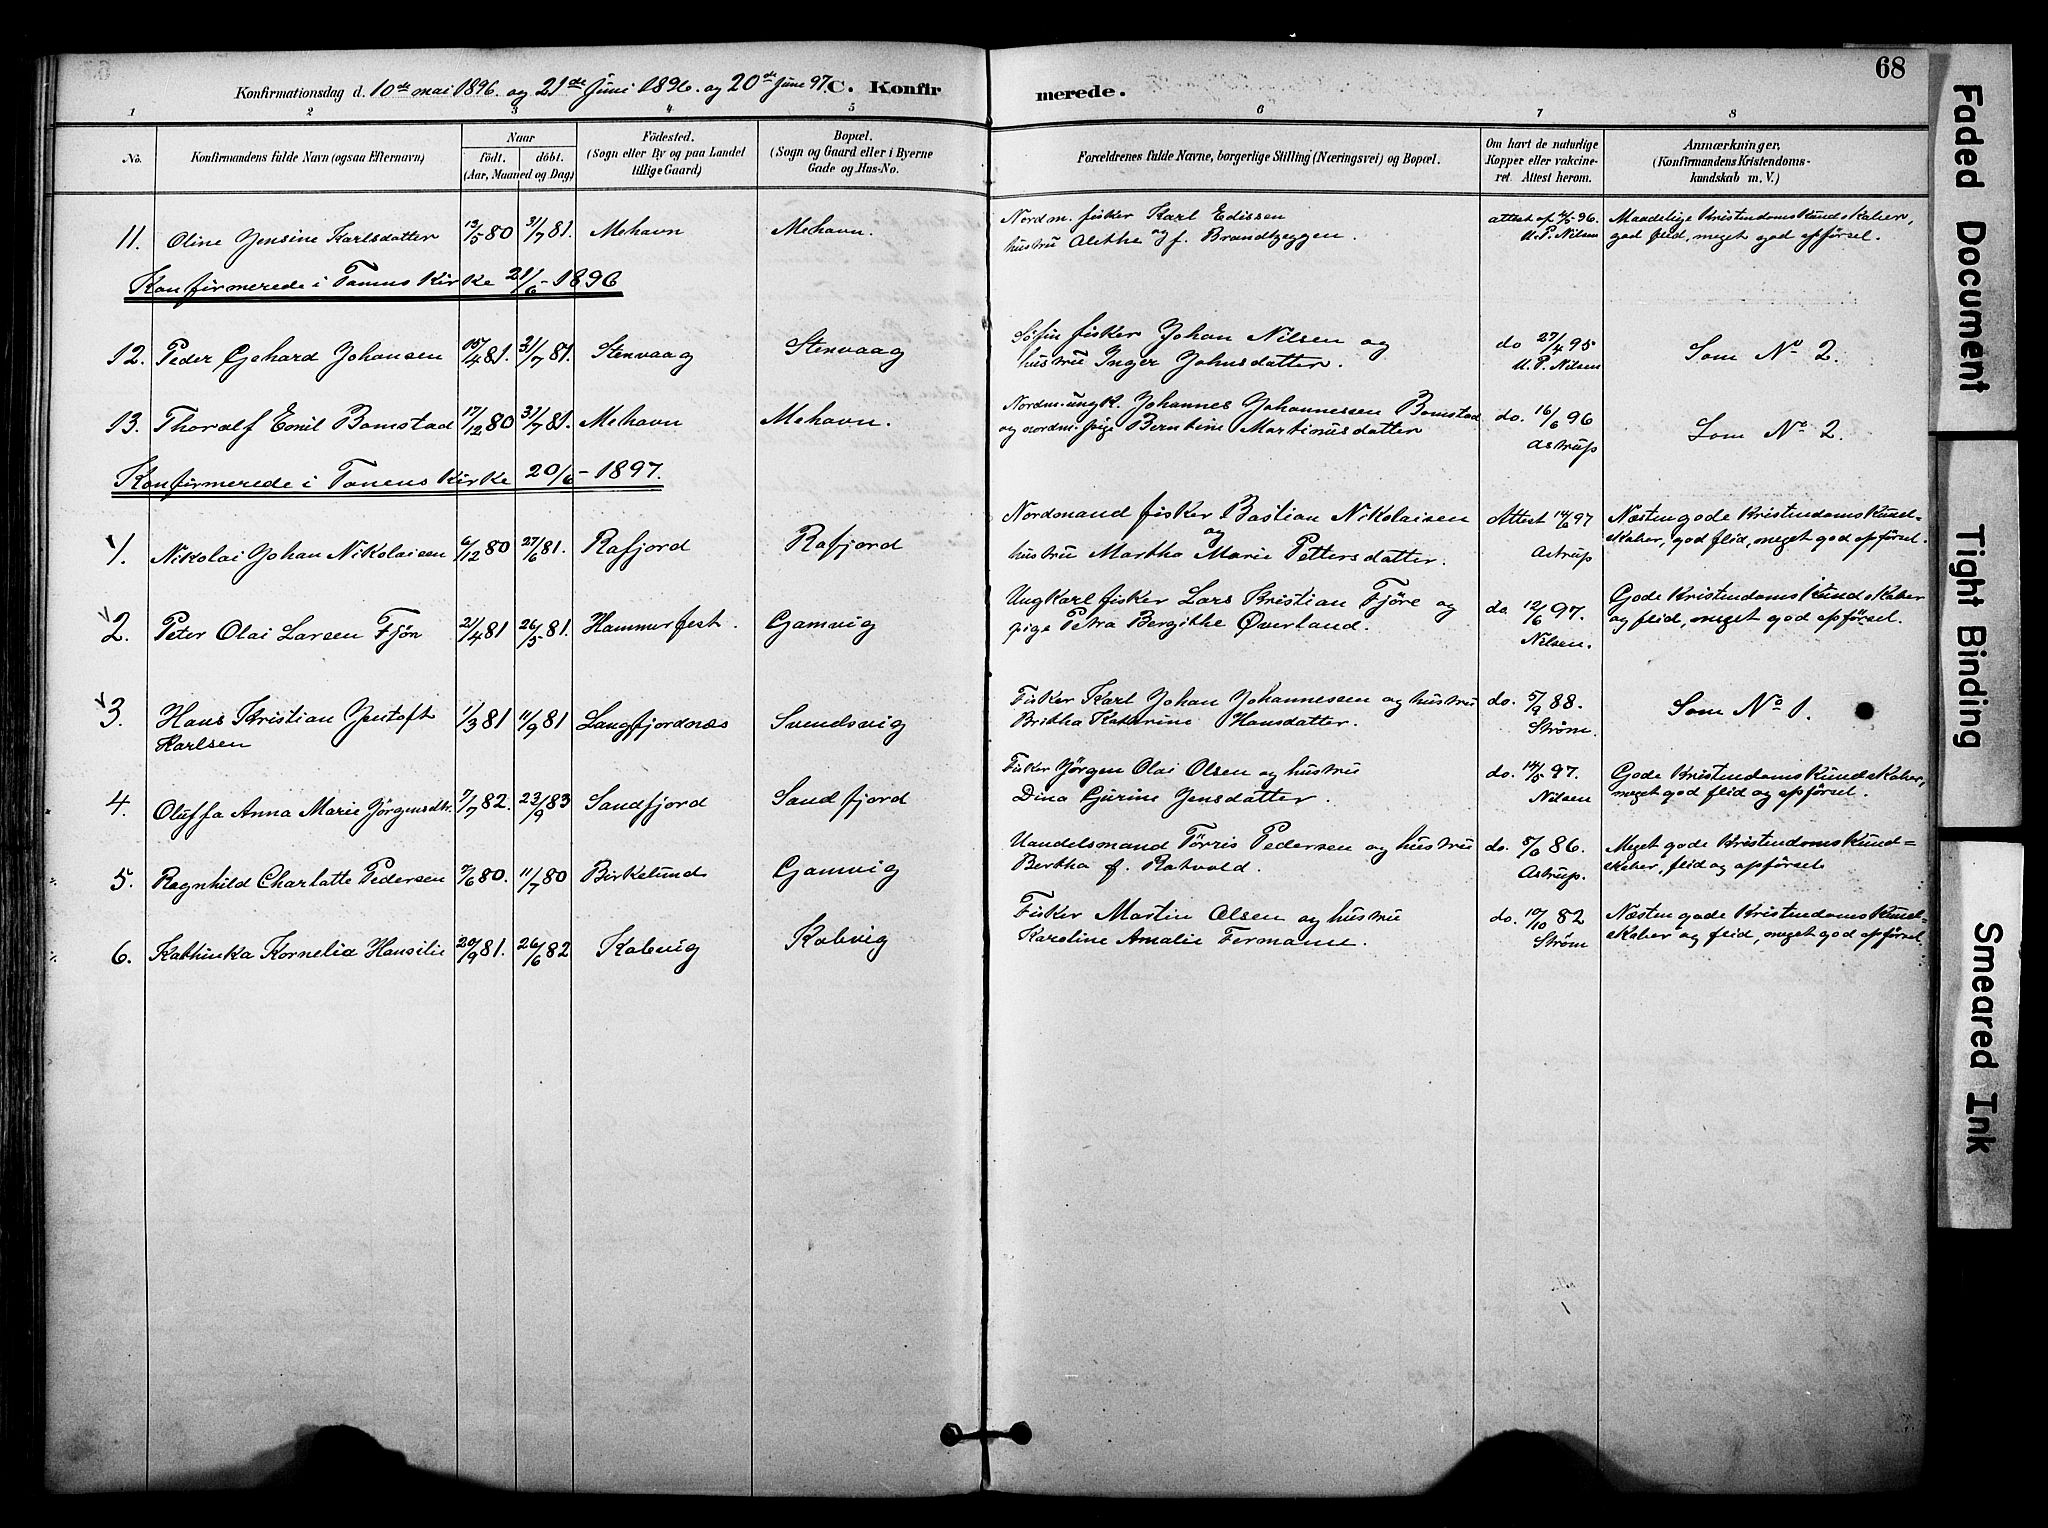 68
Konfirmationsdag d. 10de mai 1896. og 21de Juni 1896. og 20de June 97 C. Konfirmerede.
1 2 3 4 5 6 7 8
No.
Konfirmandens fulde Navn (ogsaa Efternavn)
Naar
födt. döbt.
(Aar, Maaned og Dag)
Födested.
(Sogn eller By og paa Landet
tillige Gaard)
Bopæl.
(Sogn og Gaard eller i Byerne
Gade og Hus-No.
Forældrenes fulde Navne, borgerlige Stilling (Næringsvei) og Bopæl.
Om havt de naturlige
Kopper eller vakcine-
ret. Attest herom.
Anmærkninger,
(Konfirmandens Kristendoms-
kundskab m. V.)
11. Oline Jensine Karlsdatter 13/5 80 31/7 81. Mehavn Mehavn.
Nordm. fisker Karl Edissen
hustru Alethe f. Brandtzeggen.
attest af 4/5 96.
N.P. Nilsen
Maadelige Kristendomskundskaber,
god flid, meget god opførsel.
Konfirmerede i Tanens Kirke 21/6 - 1896
12. Peder Gehard Johansen 15/4 81. 31/7 81. Stenvaag Stenvaag
Søfin fisker Johan Nilsen og
hustru Inger Johnsdatter.
do 27/4 95
N.P. Nilsen
Som No 2.
13. Thoralf Emil Bomstad 17/12 80 31/7 81. Mehavn Mehavn.
Nordm. ungk. Johannes Johannessen Bomstad
og nordm. pige Berntine Martinusdatter
do. 16/6 96
Astrup
Som No 2.
Konfirmerede i Tanens Kirke 20/6 - 1897.
1. Nikolai Johan Nikolaisen 6/12 80 27/6 81. Rafjord Rafjord
Nordmand fisker Bastian Nikolaisen
og
hustru Martha Marie Pettersdatter.
Attest 14/6 97
Astrup
Næsten gode Kristendomskund=
skaber, god flid, meget god opførsel.
2. Peter Olai Larsen Fjön 21/4 81 26/5 81. Hammerfest. Gamvig
Ungkarl fisker Lars Kristian Fjöre og
pige Petra Bergithe Øverland.
do. 12/6 97.
Nilsen.
Gode Kristendomskundskaber
og flid, meget god opførsel.
3. Hans Kristian Jentoft
Karlsen
1/3 81 11/9 81 Langfjordnæs Svendsvig
Fisker Karl Johan Johannessen og hustru
Britha Katarine Hansdatter.
do. 5/9 88.
Strøm.
Som No 1.
4. Oluffa Anna Marie Jørgensdtr. 7/7 82. 23/9 83 Sandfjord Sandfjord
Fisker Jørgen Olai Olsen og hustru
Dina Gurine Jensdatter.
do. 14/5 97.
Nilsen
Gode Kristendomskundskaber,
meget god flid og opførsel.
5. Ragnhild Charlotte Pedersen 7/6 80. 11/7 80 Birkelund Gamvig
Handelsmand Tørris Pedersen og hustru
Bertha f. Rotvold.
do. 5/6 86.
Astrup.
Meget gode Kristendomskund=
skaber, flid og opførsel
6. Kathinka Kornelia Hansilie 20/9 81. 26/6 82 Kobvig Kobvig
Fisker Martin Olsen og hustru
Karoline Amalie Fermann.
do. 10/10 82
Strøm
Næsten gode Kristendomskund=
skaber og flid, meget god opførsel.
Faded Document
Tight Binding
Smeared Ink